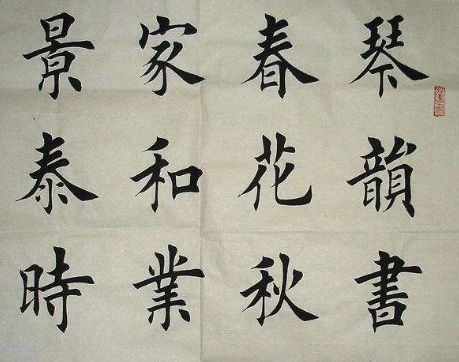 琴韻書
春花秋
家和業
景泰時